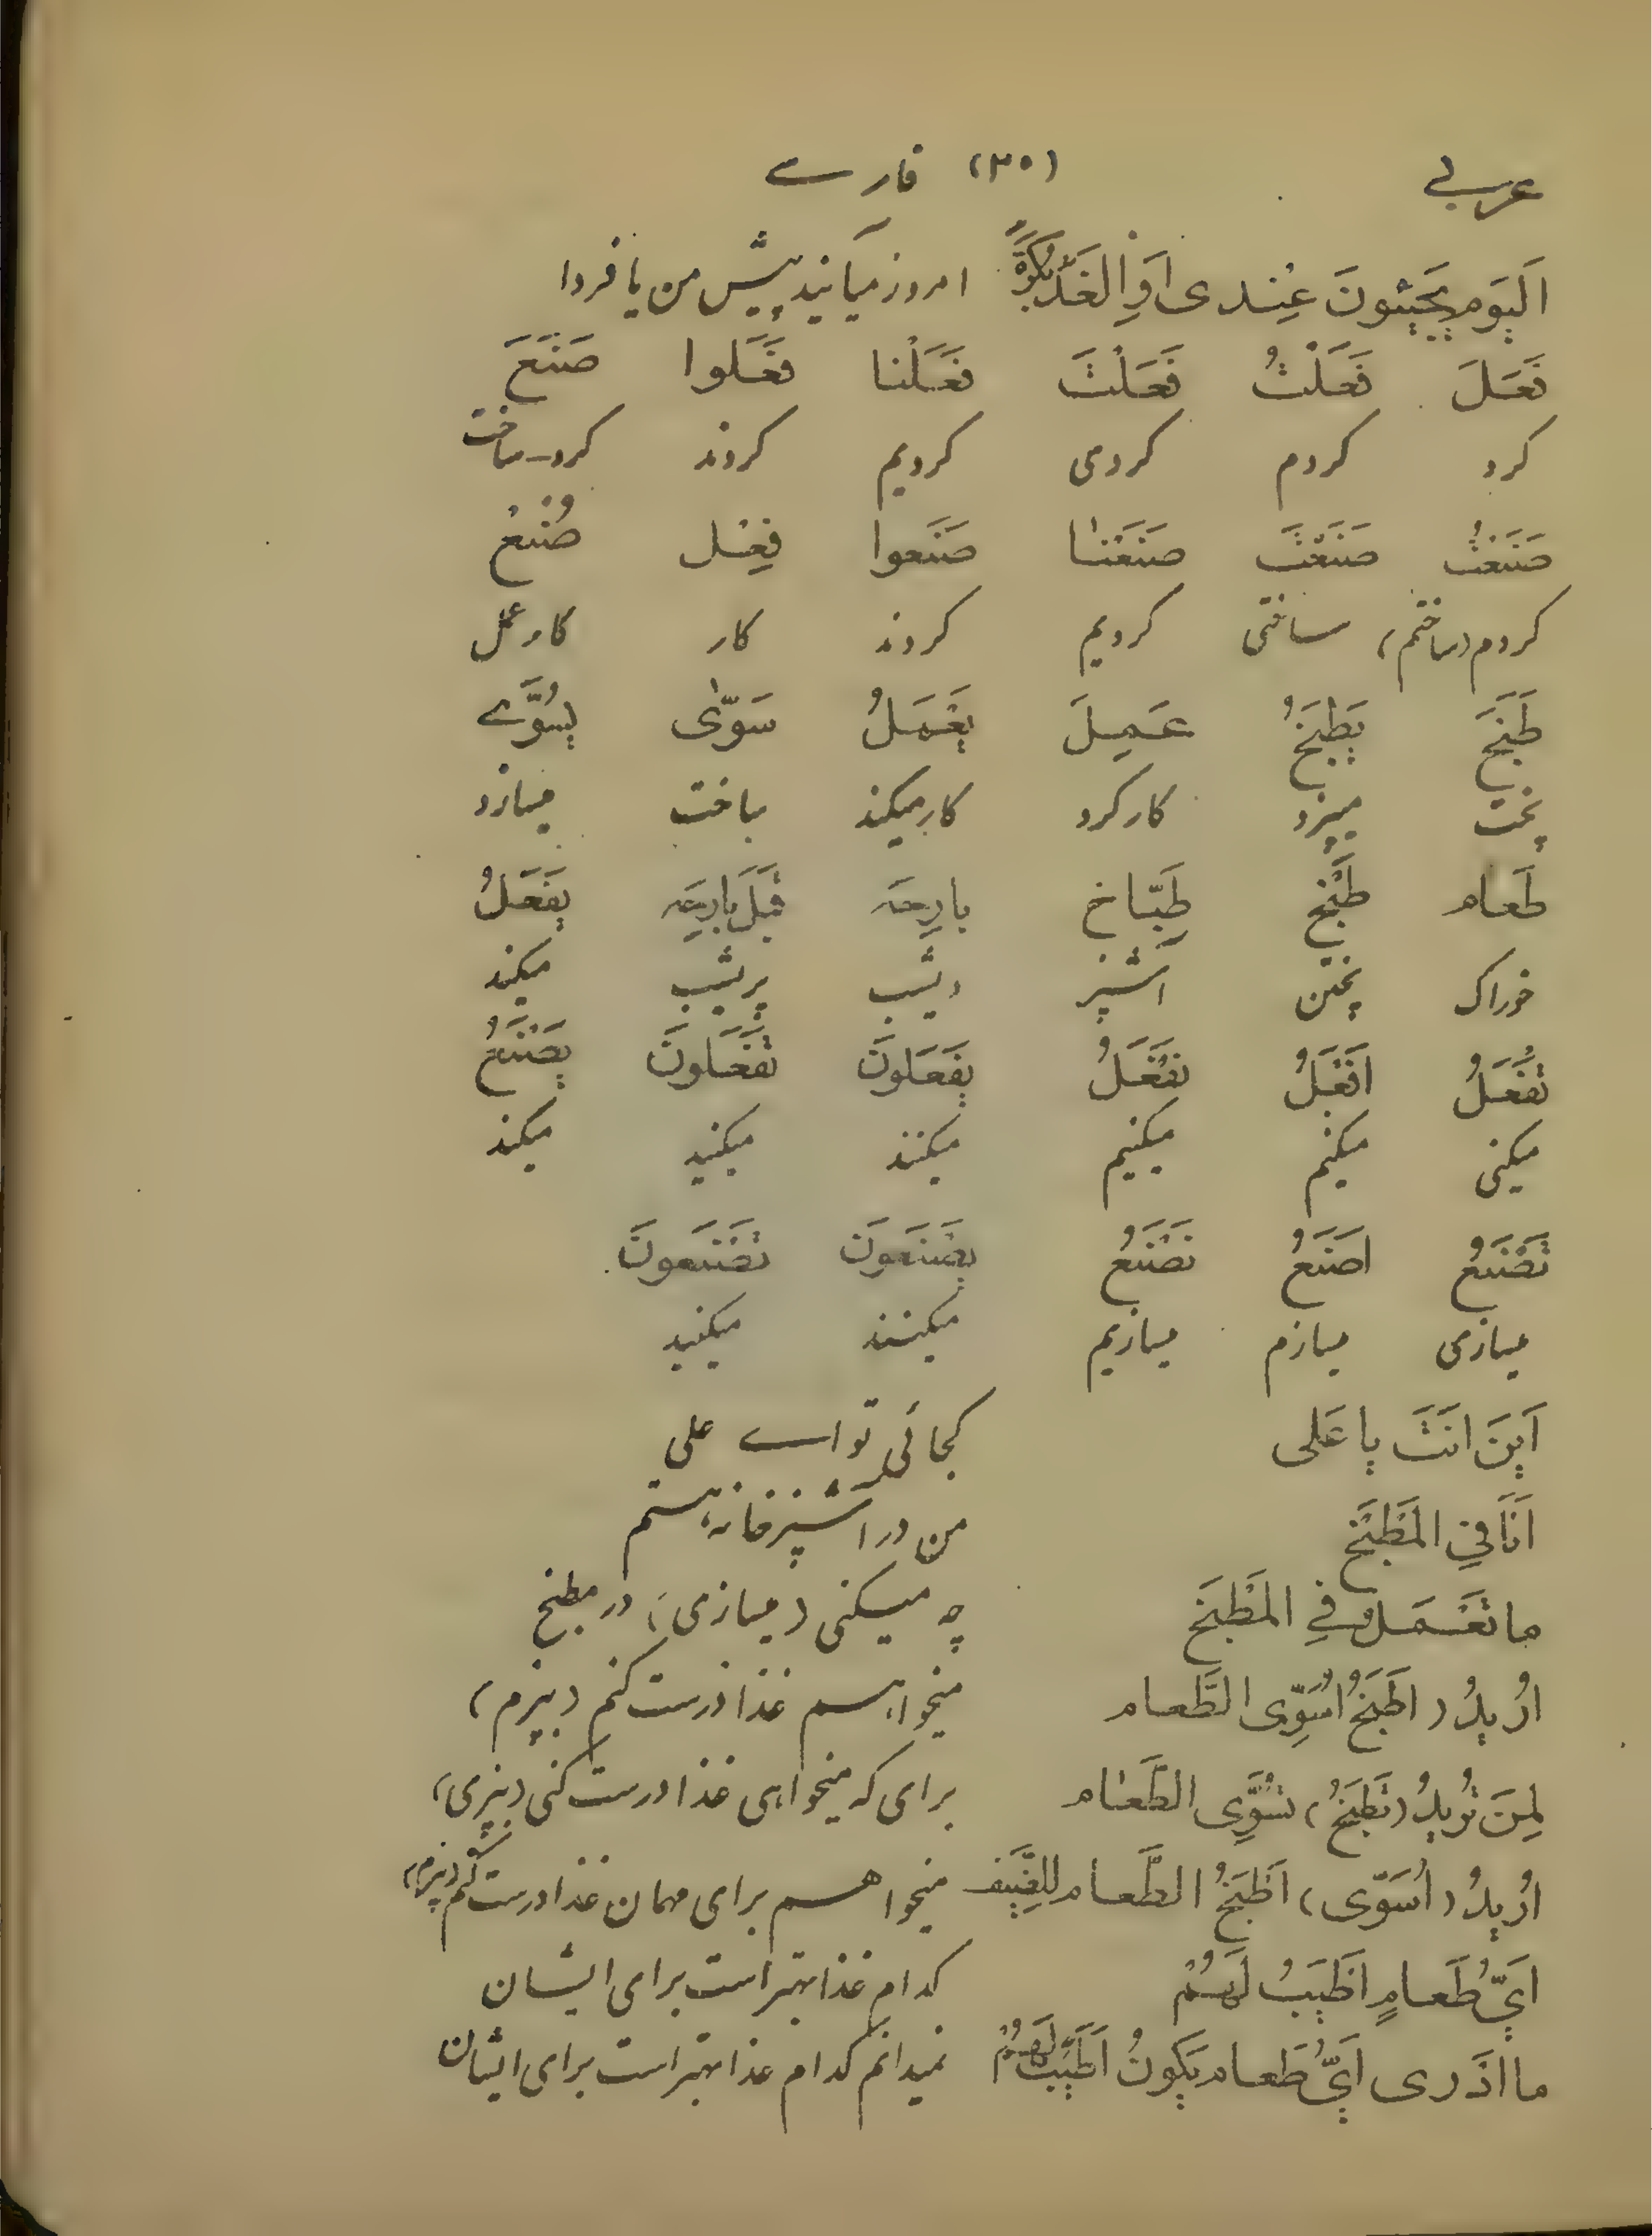 عربی (۳۰) فارسی
اَلیَوم یَجیئونَ عِندی اَوِ الغَدَ بُکرَةً امروز میآیند پیش من یا فردا
فَعَلَ فَعَلْتُ فَعَلْتَ فَعَلْنا فَعَلوا صَنَعَ
کرد کردم کردی کردیم کردند کرد-ساخت
صَنَعْتُ صَنَعْتَ صَنَعْنا صَنَعوا فِعْل صُنْعْ
کردم (ساختم) ساختی کردیم کردند کار کار عمل
طَبَخَ یَطبَخُ عَمِلَ یَعْمَلُ سَوّٰی یُسَوّے
پخت میپزد کار کرد کار میکند ساخت میسازد
طَعام طَبْخ طَبّاخ بارِحَه قَبلَ بارِحَه یَفعَلُ
خوراک پختن آشپز دیشب پریشب میکند
تَفْعَلُ اَفْعَلُ نَفْعَلُ یَفعَلونَ تَفعَلونَ یَصْنَعُ
میکنی میکنم میکنیم میکنند میکنید میکند
تَصْنَعُ اَصنَعُ نَصْنَعُ یَصْنَعونَ تَصْنَعونَ
میسازی میسازم میسازیم میکنند میکنید
اَینَ انَتَ یا عَلی کجائی تو اے علی
اَنَا فیِ المَطبَخ من در آشپزخانه هستم
ما تَعْمَلُ فیِ المَطْبَخَ چه میکنی (میسازی) در مطبخ
اُریدُ (اطبَخُ اُسَوِّی الطَّعام میخواهم غذا درست کنم (بپزم)
لِمَنَ تُریدُ (تَطبَخُ) تُسَوِّی الطَّعٰام برای که میخواهی غذا درست کنی (بپزی)
اُریدُ (اُسَوّی) اَطبَخُ الطَّعام لِلضَّیف میخواهم برای مهمان غذا درست کنم (بپزم)
اَیُّ طَعامٍ اَطیَبُ لَهُمْ کدام غذا بهتر است برای ایشان
ما اَدَری اَیُّ طَعام یَکونُ اَطیَبُ لَهُمْ نمیدانم کدام غذا بهتر است برای ایشان